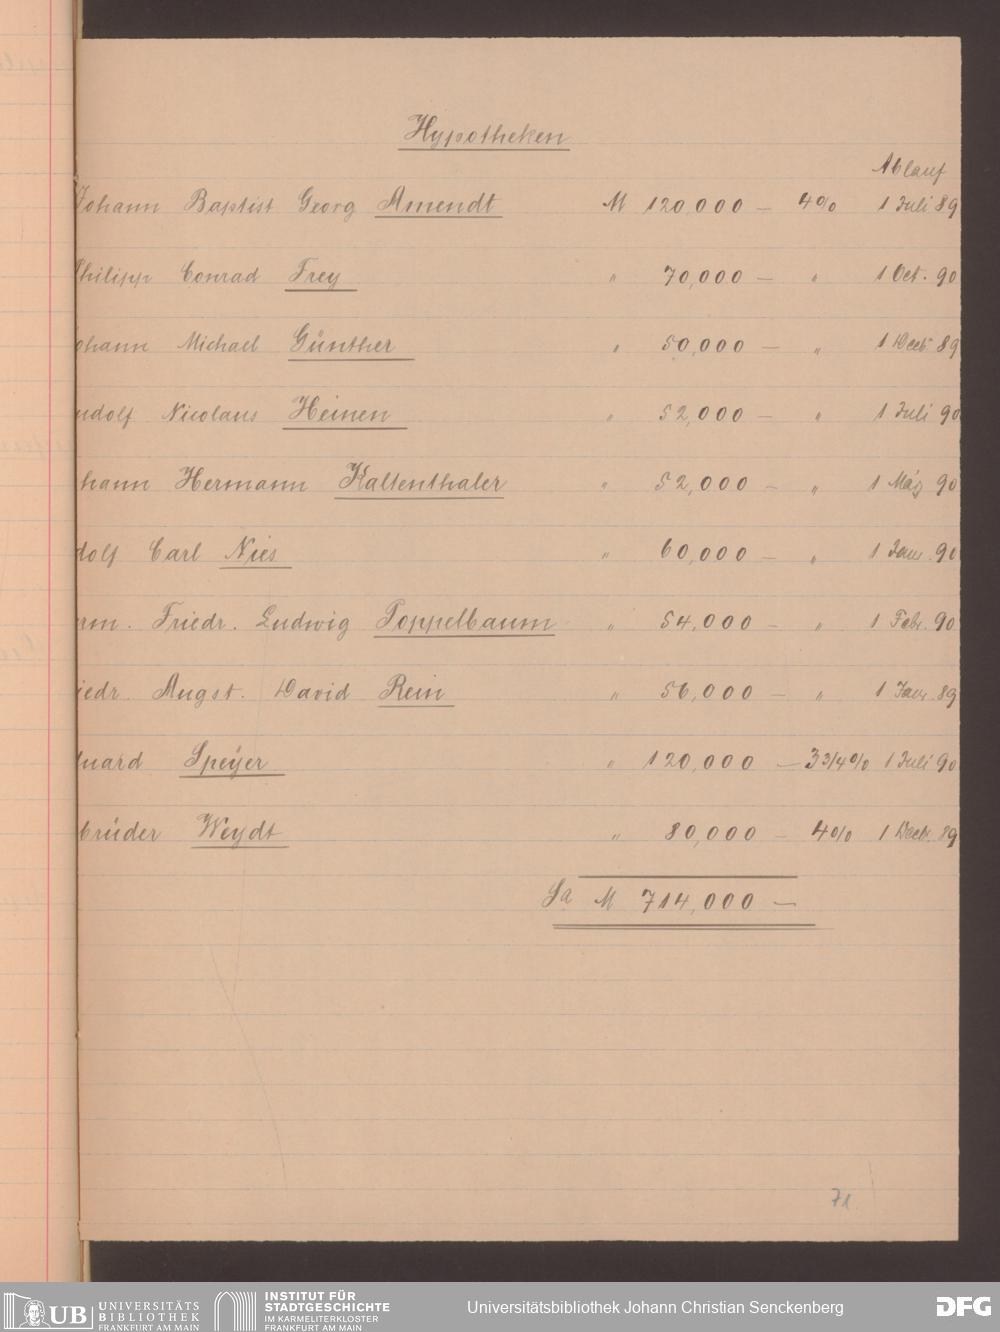 Hypotheken
Ablauf
Johann Baptist Georg Amendt M 120,000 — 4% 1 Juli 89
Philipp Conrad Frey " 70,000 — " 1 Oct. 90
ohann Michael Günther " 50,000 — " 1 Decb 89
udolf Nicolaus Heinen " 52,000 — " 1 Juli 90
hann Hermann Kaltenthaler " 52,000 — " 1 März 90
dolf Carl Nies " 60,000 — " 1 Jan. 90
rm. Friedr. Ludwig Poppelbaum " 54,000 — " 1 Febr. 90
iedr. Augst. David Rein " 56,000 — " 1 Jan. 89
duard Speÿer " 120,000 — 3 3/4% 1 Juli 90
brüder Weydt " 80,000 — 4% 1 Decb. 89
Sa M 714,000 —
71
UB UNIVERSITÄTS
BIBLIOTHEK
FRANKFURT AM MAIN
INSTITUT FÜR
STADTGESCHICHTE
IM KARMELITERKLOSTER
FRANKFURT AM MAIN
Universitätsbibliothek Johann Christian Senckenberg
DFG